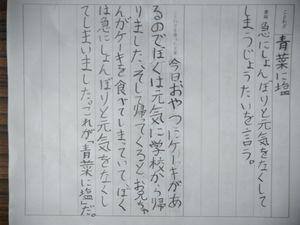 ことわざ
青葉に塩
意味
急にしょんぼりと元気をなくして
しまうじょうたいを言う。
今日おやつにケーキがあ
るのでぼくは元気に学校から帰
りました。そして帰ってくるとお兄ちゃ
んがケーキを食べてしまっていて、ぼく
は急にしょんぼりと元気をなくし
てしまいました。これが「青葉に塩」だ。